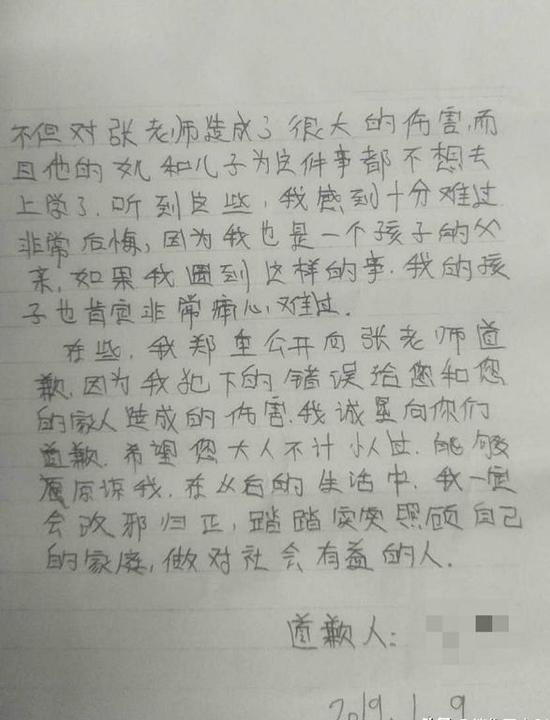 不但对张老师造成了很大的伤害,而
且他的女儿和儿子为这件事都不想去
上学了.听到这些,我感到十分难过.
非常后悔,因为我也是一个孩子的父
亲,如果我遇到这样的事.我的孩
子也肯定非常痛心,难过.
在些,我郑重公开向张老师道
歉,因为我犯下的错误给您和您
的家人造成的伤害.我诚恳向你们
道歉.希望您大人不计小人过.能够
原谅我.在以后的生活中.我一定
会改邪归正,踏踏实实照顾自己
的家庭,做对社会有益的人.
道歉人:
2019.1.9